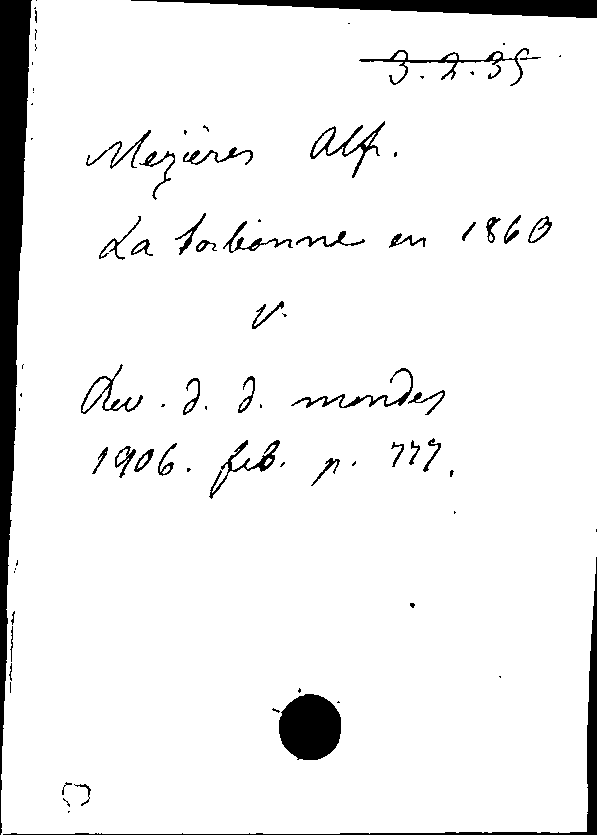 3.2.35
Mezières Alf.
La Sorbonne en 1860
v.
Rev. d. d. mondes
1906. feb. p. 777.